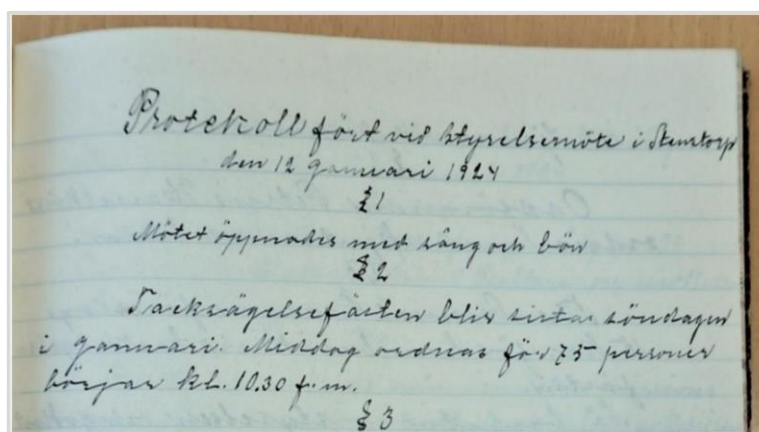 Protokoll fört vid styrelsemöte i Stenstorp
den 12 januari 1924
§ 1
Mötet öppnades med sång och bön
§ 2
Tacksägelsefästen blir sista söndagen
i januari. Middag ordnas för 75 personer
börjar kl. 10.30 f.m.
§ 3